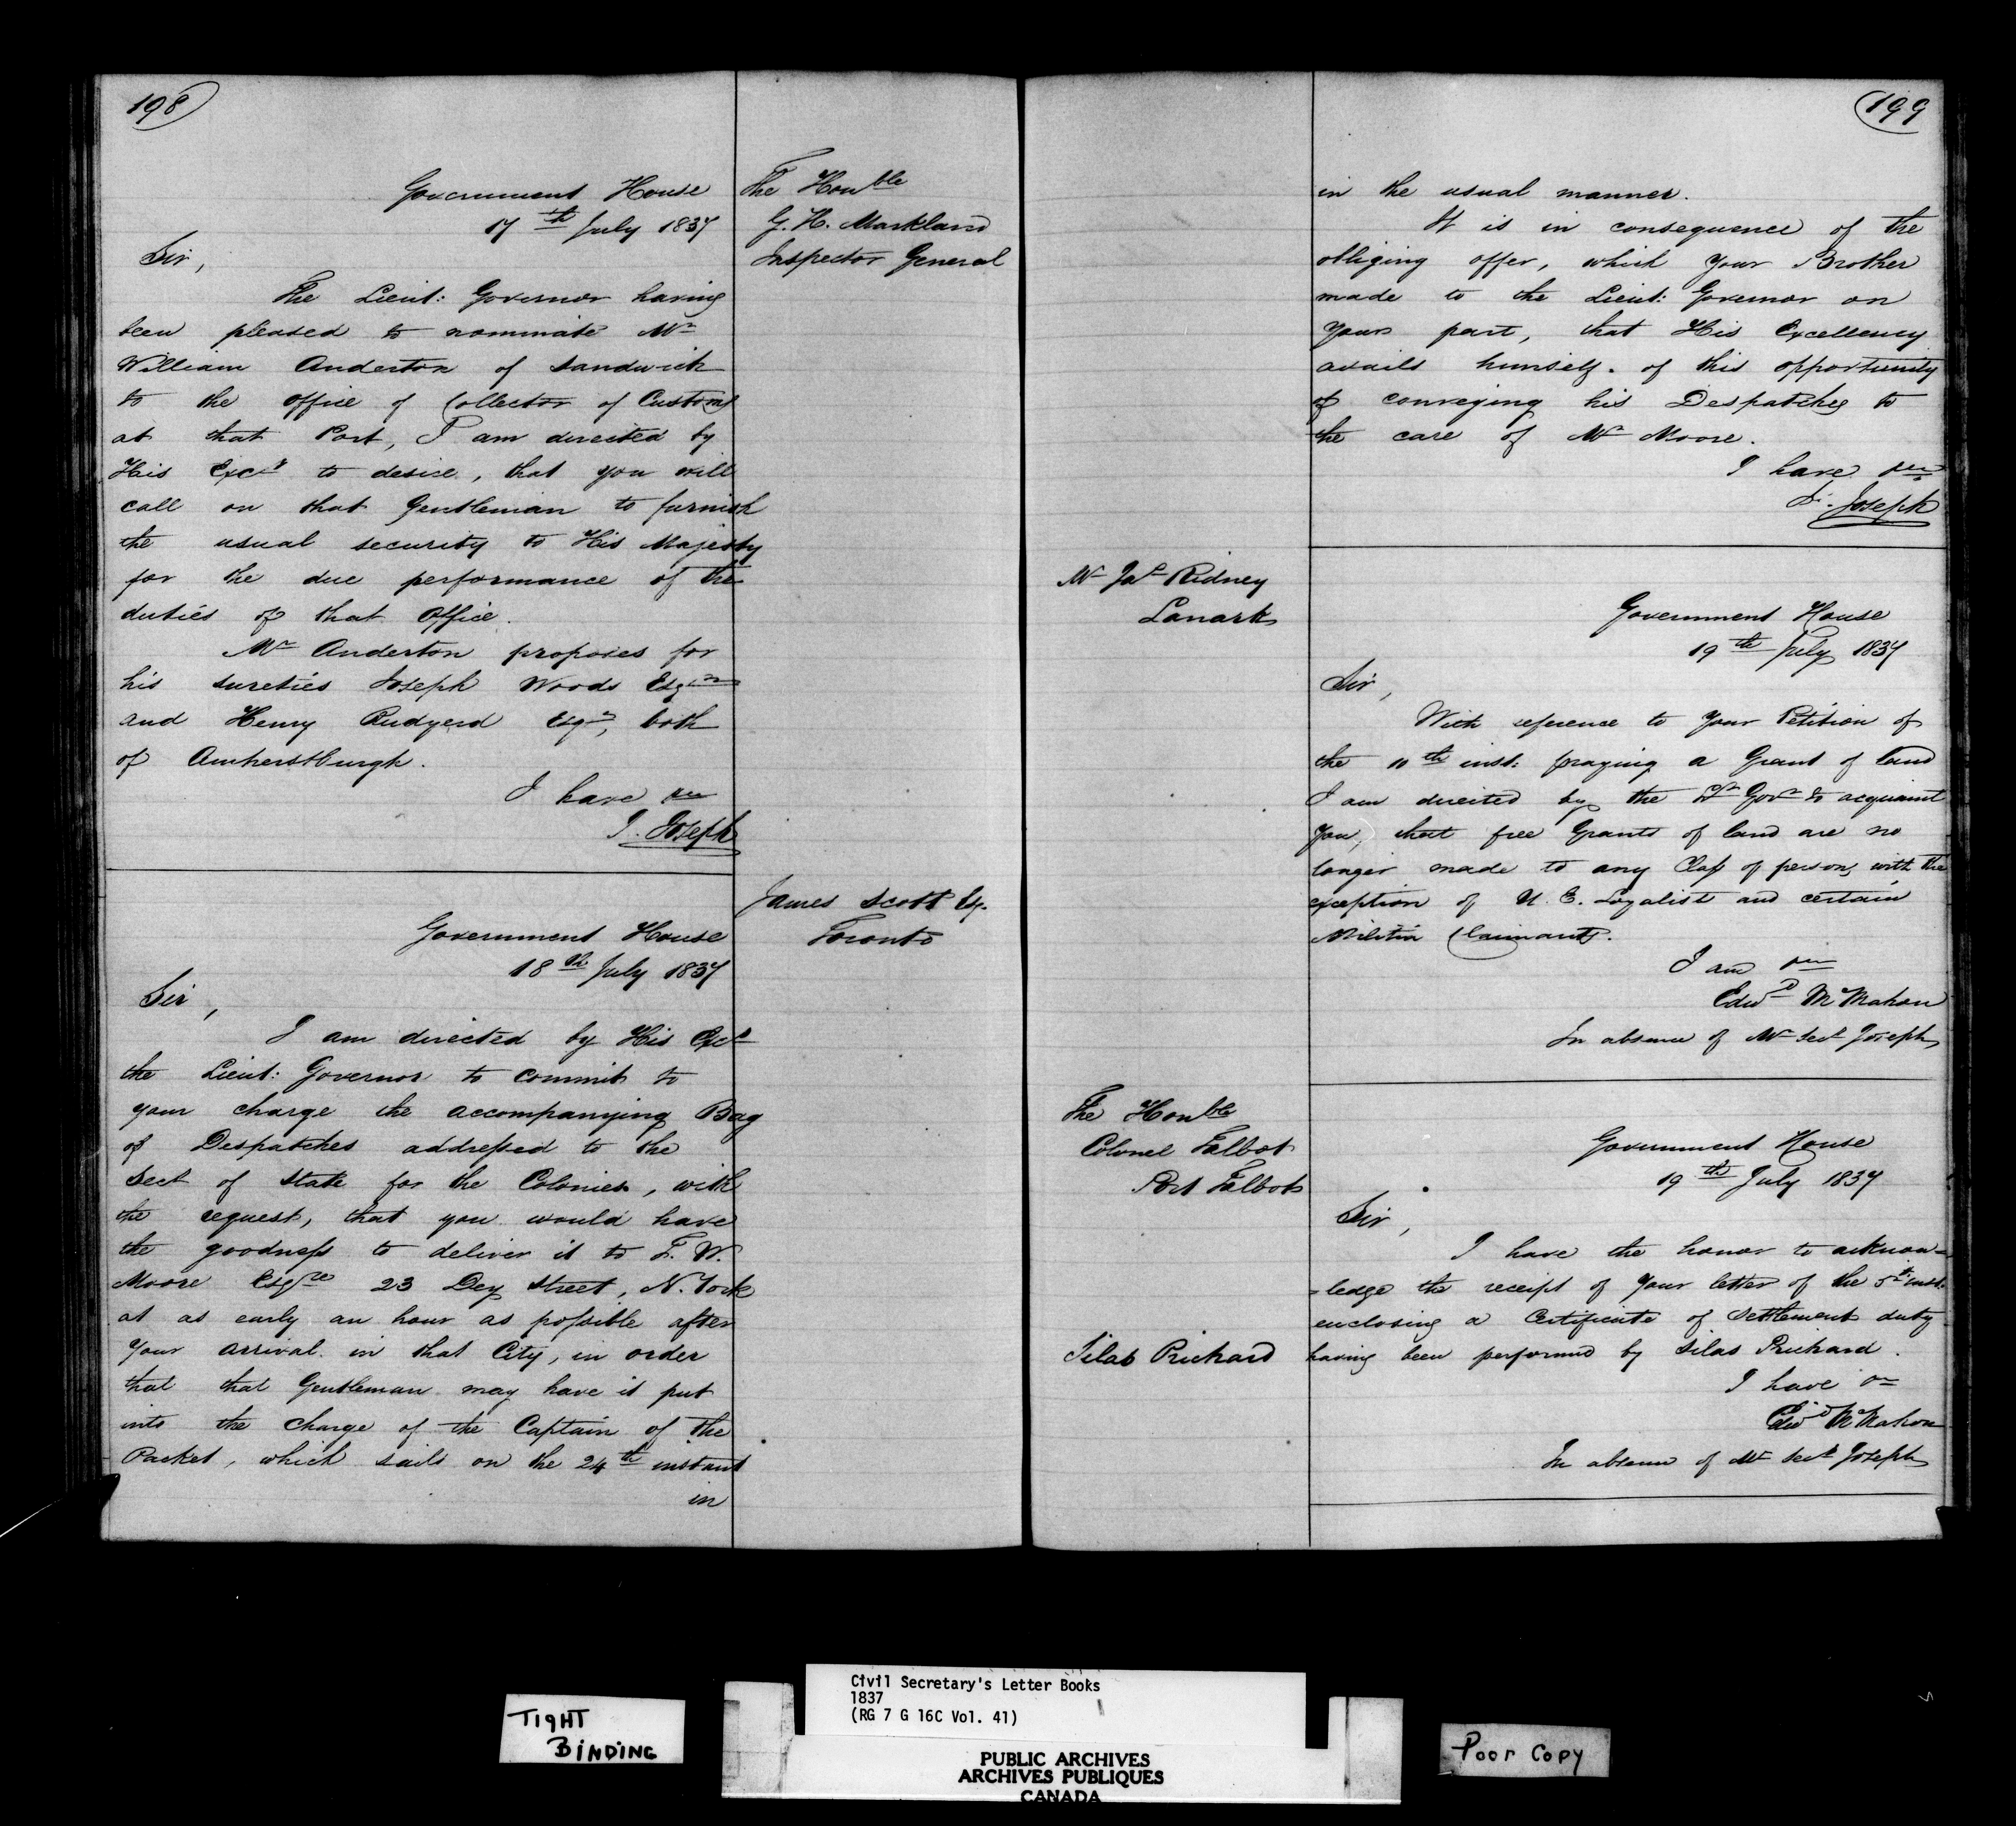 198
Government House
17th July 1837
The Honble
G. H. Markland
Inspector General
Sir,
The Lieut: Governor having
been pleased to nominate Mr
William Anderton of Sandwich
to the Office of Collector of Customs
at that Port, I am directed by
His Excy to desire, that you will
call on that Gentleman to furnish
the usual security to His Majesty
for the due performance of the
duties of that Office.
Mr Anderton proposes for
his sureties Joseph Woods Esqre
and Henry Rudyerd Esqr, both
of Amherstburgh.
I have &c
J. Joseph
James Scott Esq.
Toronto
Government House
18th July 1837
Sir,
I am directed by His Excy
the Lieut: Governor to commit to
your charge the accompanying Bag
of Despatches addressed to the
Sect of State for the Colonies, with
the request, that you would have
the goodness to deliver it to F. W.
Moore Esqre 23 Dey Street, N. York
at as early an hour as possible after
your arrival in that City, in order
that that Gentleman may have it put
into the charge of the Captain of the
Packet, which sails on the 24th instant
in
199
in the usual manner.
It is in consequence of the
obliging offer, which your Brother
made to the Lieut: Governor on
your part, that His Excellency
avails himself of this opportunity
of conveying his Despatches to
the care of Mr Moore.
I have &c
J. Joseph
Mr Jas Ridney
Lanark
Government House
19th July 1837
Sir,
With reference to your Petition of
the 10th inst: praying a Grant of land
I am directed by the Lt Govr to acquaint
you, that free Grants of land are no
longer made to any Class of persons, with the
exception of U. E. Loyalist and certain
Militia Claimants.
I am &c
Edwd McMahon
In absence of Mr Secy Joseph
The Honble
Colonel Talbot
Port Talbot
Government House
19th July 1837
Sir,
I have the honor to acknow=
=ledge the receipt of your letter of the 5th inst:
enclosing a Certificate of Settlement duty
Silas Prichard
having been performed by Silas Prichard.
I have &c
Edwd McMahon
In absence of Mr Secy Joseph
TIGHT
BINDING
Civil Secretary's Letter Books
1837
(RG 7 G 16C Vol. 41)
PUBLIC ARCHIVES
ARCHIVES PUBLIQUES
CANADA
Poor Copy